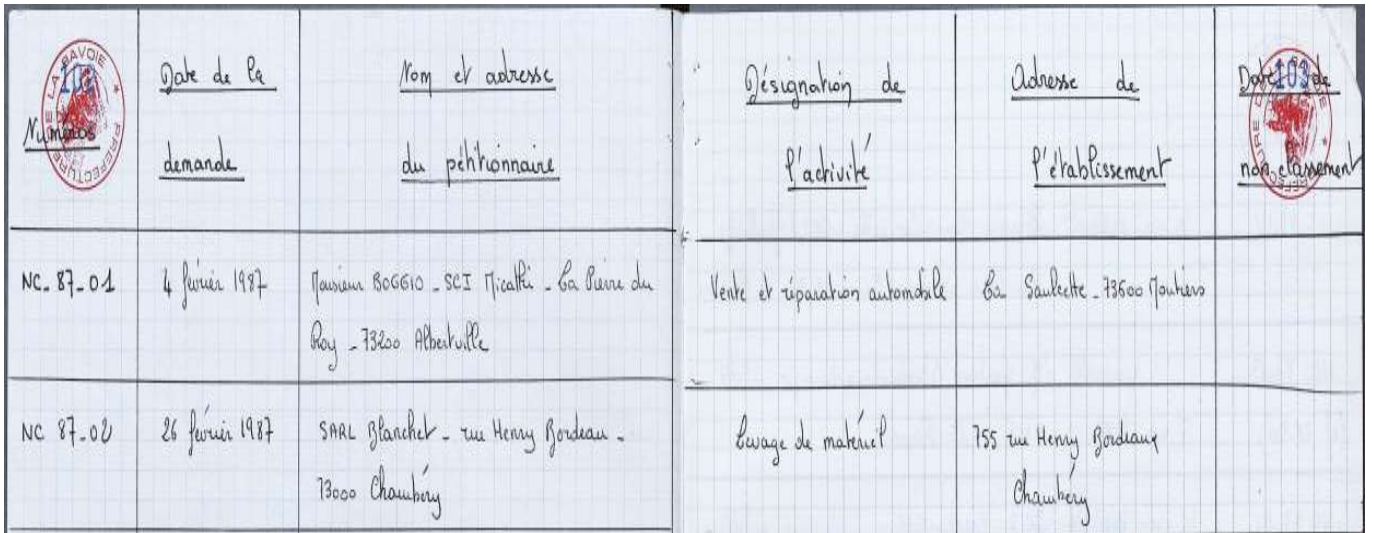 102
PREFECTURE DE LA SAVOIE
Numéros
Date de la
demande
Nom et adresse
du pétitionnaire
Désignation de
l'activité
Adresse de
l'établissement
103
Date de
non classement
NC_87_01
4 février 1987
Monsieur BOGGIO _ SCI Micathi _ La Pierre du
Roy _ 73200 Albertville
Vente et réparation automobile
La Saulcette _ 73600 Moutiers
NC 87_02
26 février 1987
SARL Blanchet _ rue Henry Bordeau _
73000 Chambéry
Lavage de matériel
755 rue Henry Bordeaux
Chambéry